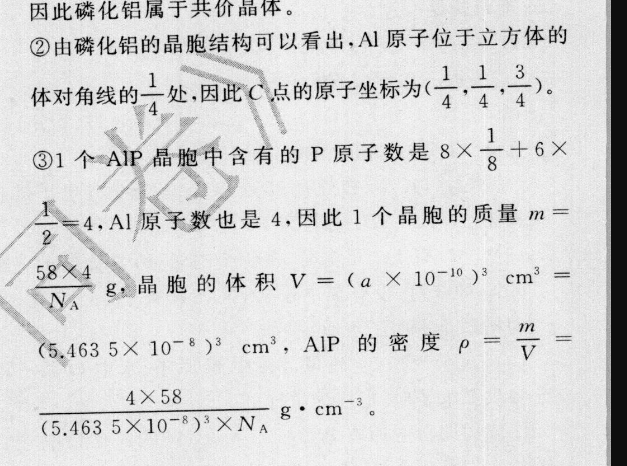 因此磷化铝属于共价晶体。
②由磷化铝的晶胞结构可以看出,Al 原子位于立方体的
体对角线的1/4处,因此 C 点的原子坐标为(1/4,1/4,3/4)。
③1 个 AlP 晶胞中含有的 P 原子数是 8×1/8+6×
1/2=4,Al 原子数也是 4,因此 1 个晶胞的质量 m=
58×4/N_A g,晶胞的体积 V=(a×10⁻¹⁰)³ cm³=
(5.463 5×10⁻⁸)³ cm³,AlP 的密度 ρ=m/V=
4×58/((5.463 5×10⁻⁸)³×N_A) g·cm⁻³。